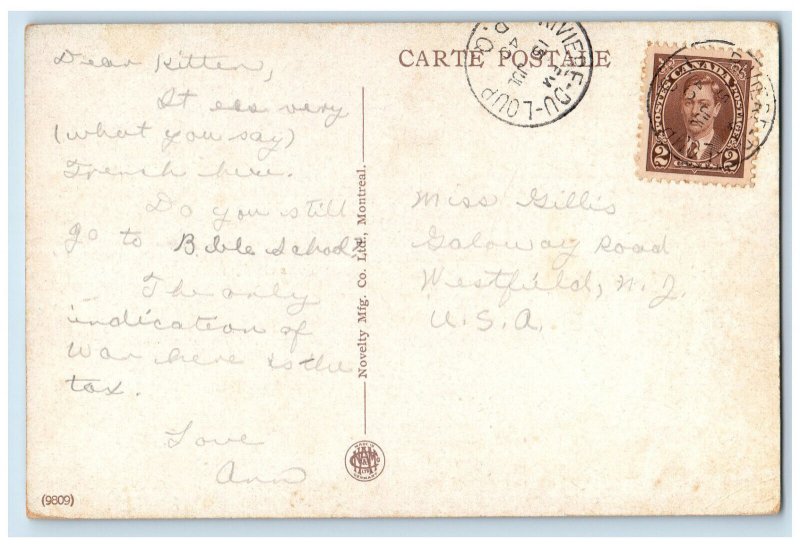 Dear Kitten,
It is very
(what you say)
French here.
Do you still
go to Bible School?
The only
indication of
War here is the
tax.
Love
Ann
(9809)
Novelty Mfg. Co. Ltd., Montreal.
CARTE POSTALE
RIVIERE-DU-LOUP
P.Q.
PM
JUL
40
POSTES CANADA POSTAGE
2 CENTS 2
Miss Gillis
Galoway Road
Westfield, N.J.
U.S.A.